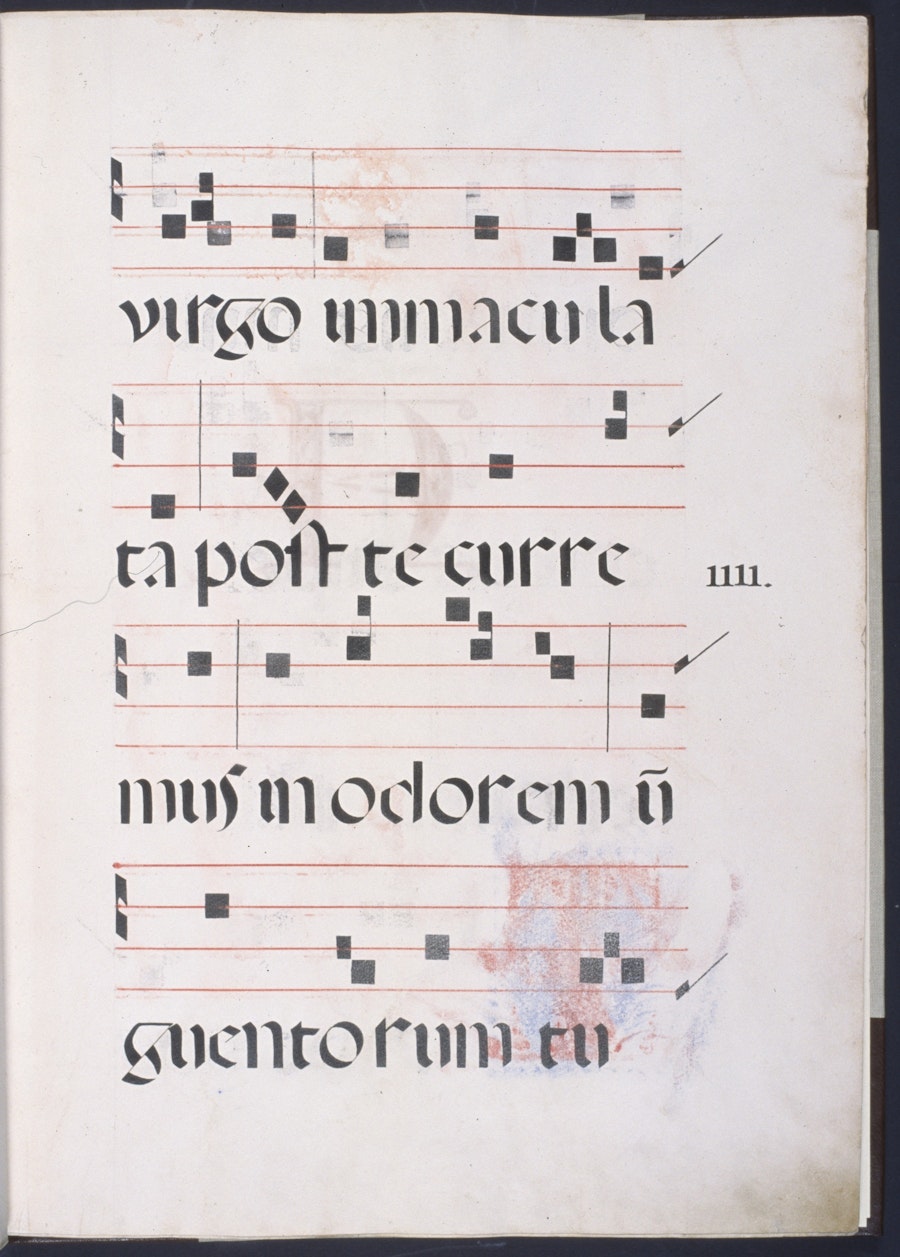 virgo immacula
ta post te curre
1111.
mus in odorem ũ
guentorum tu